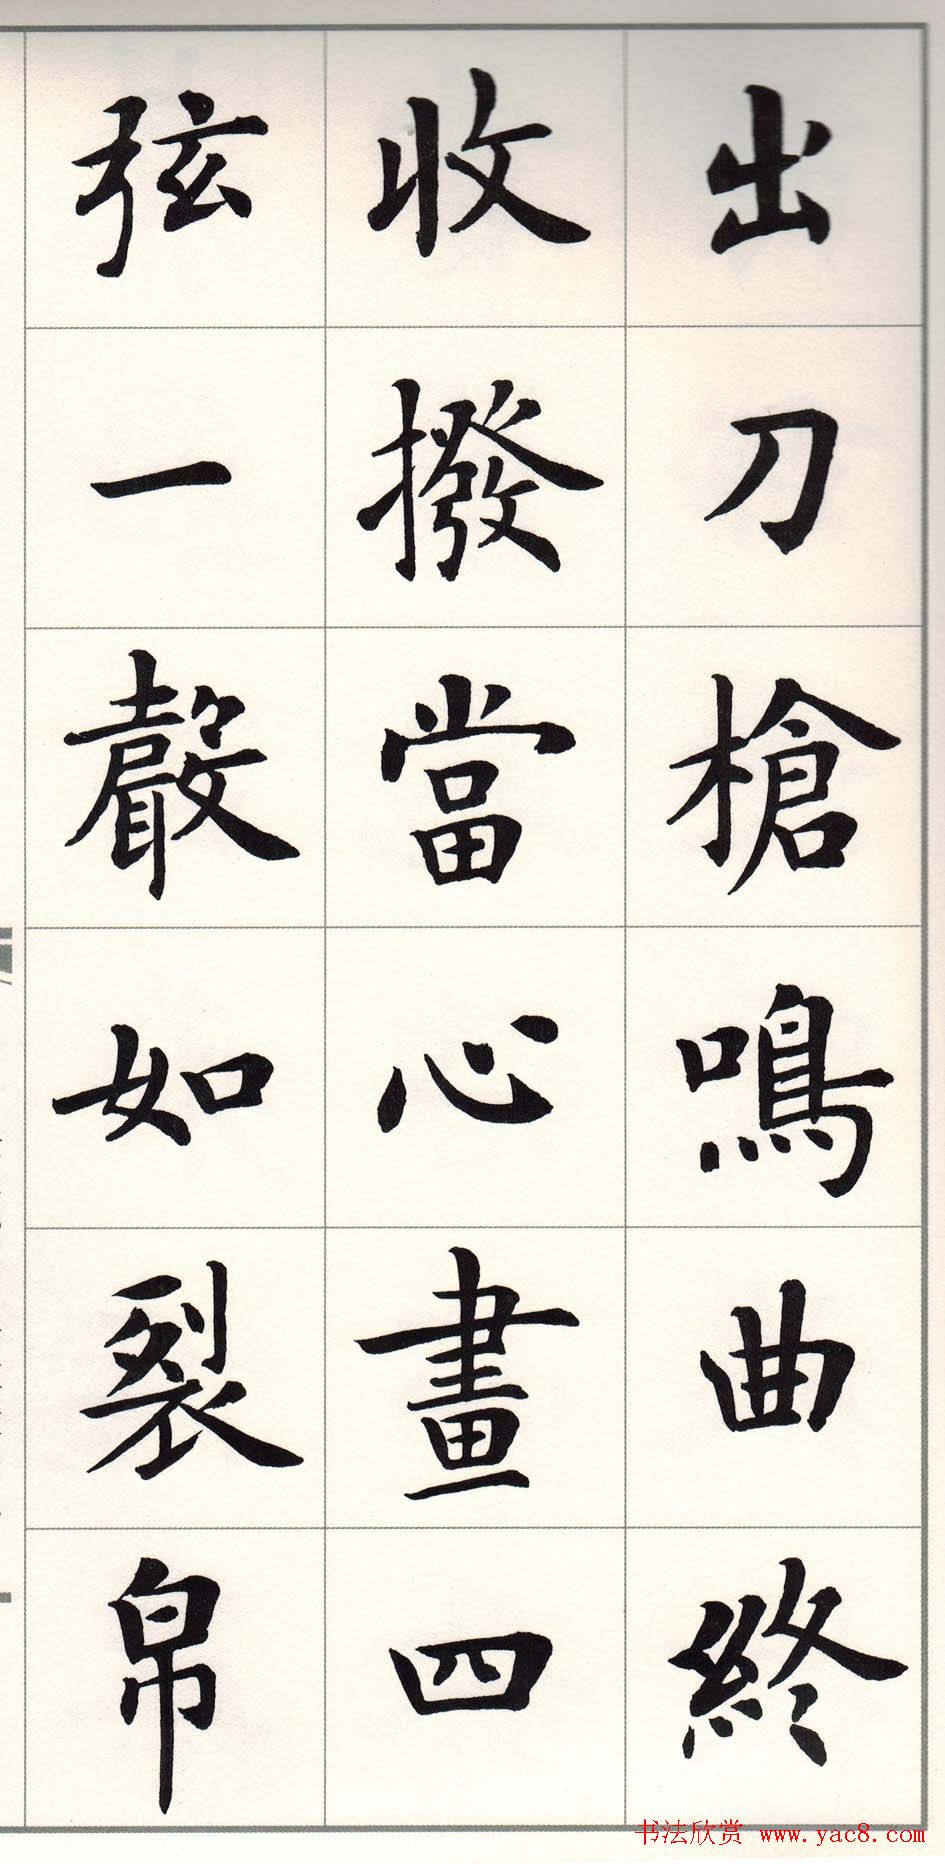 出刀槍鳴曲終
收撥當心畫四
弦一聲如裂帛
书法欣赏 www.yac8.com